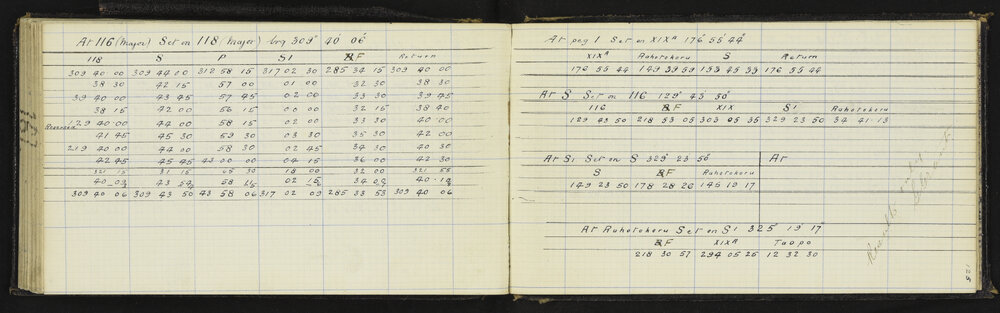 At 116 (Major) Set on 118 (Major) brg 309° 40' 06"
118 S P S1 F Return
309 40 00 309 44 00 312 58 15 317 02 30 285 34 15 309 40 00
38 30 42 15 57 00 01 00 32 30 38 30
39 40 00 43 45 57 45 02 00 33 30 39 45
38 15 42 00 56 15 00 00 32 15 38 40
129 40 00 44 00 58 15 02 00 33 30 40 00
Reversed 41 45 45 30 59 30 03 30 35 30 42 00
219 40 00 44 00 58 30 02 45 34 30 40 30
42 45 45 45 43 00 00 04 15 36 00 42 30
321 15 31 15 05 30 18 00 32 00 321 55
40 09 43 52 58 26 02 15 34 02 40 10
309 40 06 309 43 50 43 58 06 317 02 09 285 33 55 309 40 06
At peg 1 Set on XIXA 176° 55' 44"
XIXA Ruhotokeru S Return
176 55 44 149 39 59 153 45 33 176 55 44
At S Set on 116 129° 43' 50"
116 F XIX S1 Ruhotokeru
129 43 50 218 53 05 303 05 35 329 23 50 34 41 13
At S1 Set on S 329° 23' 50" At
S F Ruhotokeru
149 23 50 178 28 26 145 19 17
At Ruhotokeru Set on S1 325° 19' 17"
F XIXA Taopo
218 30 57 294 05 25 12 32 30
Results only